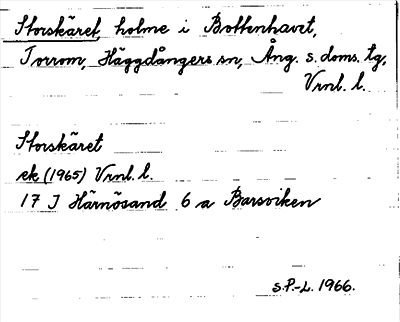 Storskäret, holme i Bottenhavet,
Torrom, Häggdångers sn, Ång. s. doms. tg,
Vrnl. l.
Storskäret
ek (1965) Vrnl. l.
17 J Härnösand 6 a Barsviken
S.P.-L. 1966.